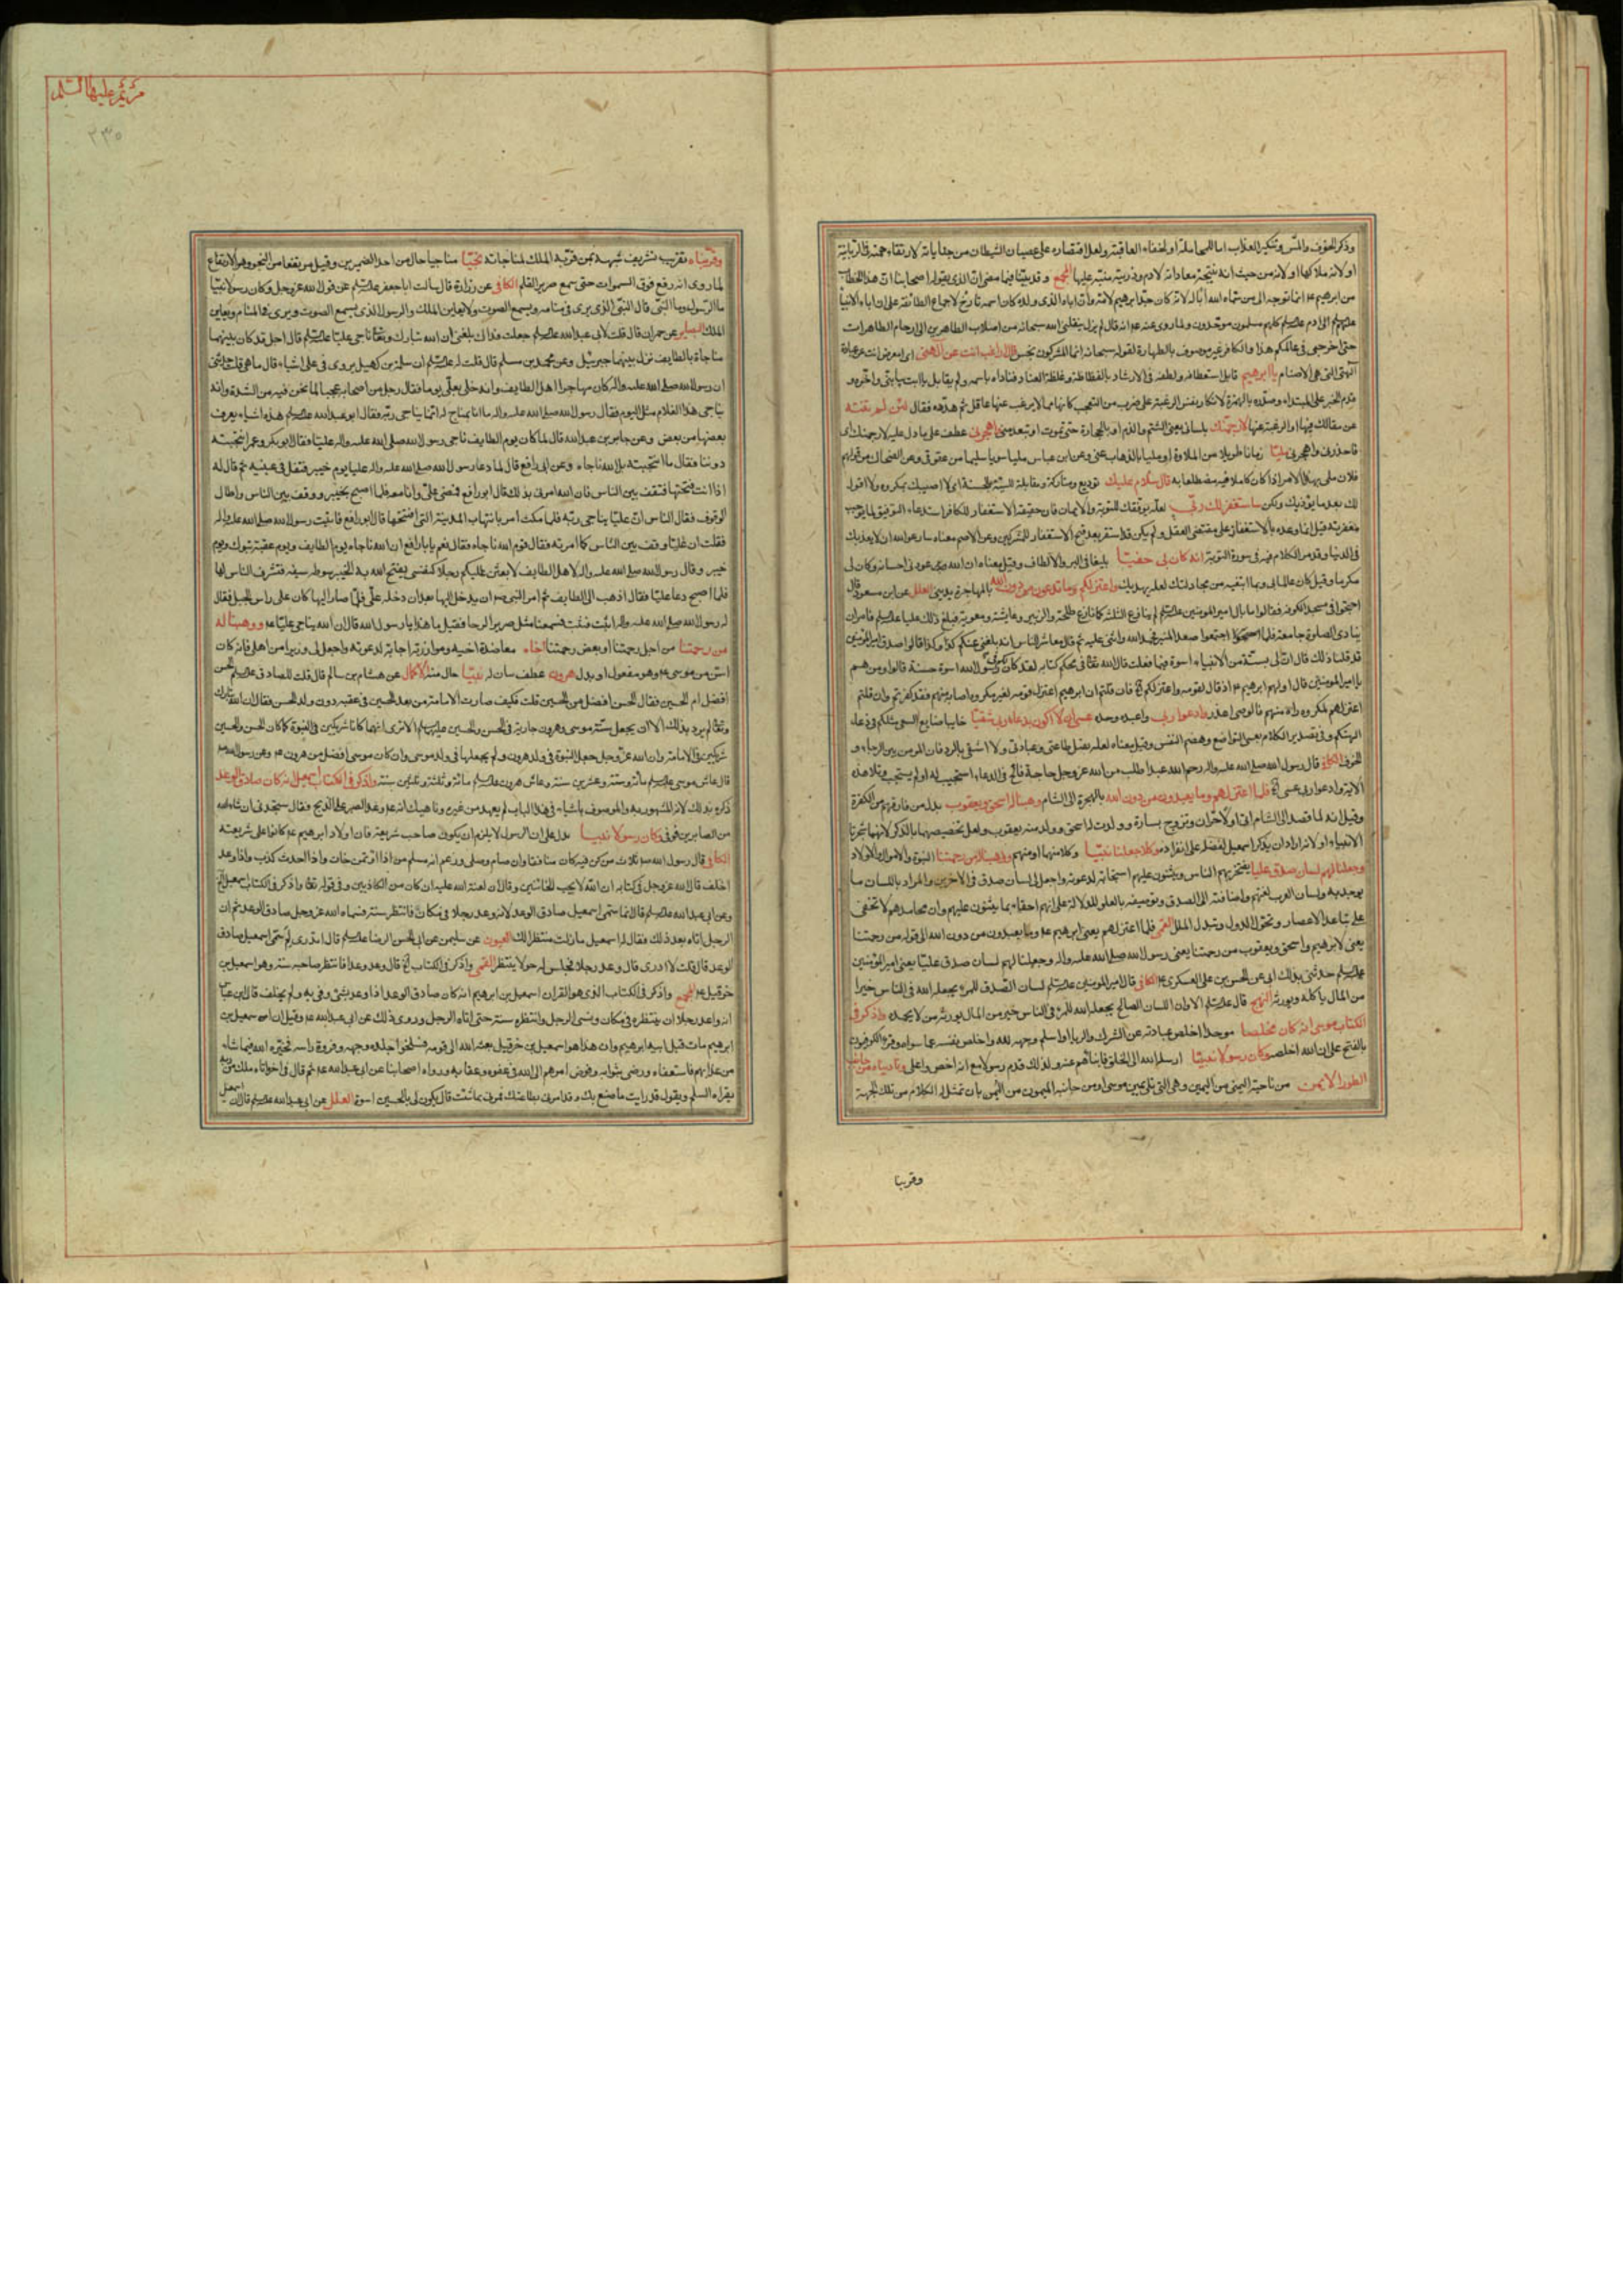 وذكر الخوف والمس وتنكير العذاب اما للمجاملة او لخفاء العاقبة ولعل اقتصاره على عصيان الشيطان من جناياته لارتقاء همته في الربانية
او لانه ملاكها او لانه من حيث انه نتيجة معاداته لادم وذريته منبه عليها المجمع و قد بينا فيما مضى ان الذي يقوله اصحابنا ان هذا الخطاب
من ابرهيم ع انما توجه الى من سماه الله ابا له لانه كان جد ابرهيم لامه وان اباه الذي ولده كان اسمه تارخ لاجماع الطائفة على ان اباء الانبيا
الى ادم كلهم مسلمون موحدون ولما روى عنه ع انه قال لم يزل ينقلني الله سبحانه من اصلاب الطاهرين الى ارحام الطاهرات
حتى اخرجني في عالمكم هذا والكافر غير موصوف بالطهارة لقوله سبحانه انما المشركون نجس قال اراغب انت عن الهتي اي امعرض انت عن عبادة
الهتي التي هي الاصنام يا ابرهيم قابل استعطافه ولطفه في الارشاد بالفظاظة وغلظة العناد فناداه باسمه ولم يقابل يا ابت بيا بني واخره و
قدم الخبر على المبتدا وصدره بالهمزة لانكار نفس الرغبة على ضرب من التعجب كانها مما لا يرغب عنها عاقل ثم هدده فقال لئن لم تنته
عن مقالك فيها او الرغبة عنها لارجمنك بلساني يعني الشتم والذم او بالحجارة حتى تموت او تبعد مني واهجرني عطف على ما دل عليه لارجمنك اي
فاحذرني واهجرني مليا زمانا طويلا من الملاوة او مليا بالذهاب عني وعن ابن عباس مليا سويا سليما من عقوبتي وعن الضحاك من قولهم
فلان ملي بهذا الامر اذا كان كاملا فيه مضطلعا به قال سلام عليك توديع ومتاركة ومقابلة للسيئة بالحسنة اي لا اصيبك بمكروه ولا اقول
لك بعد ما يؤذيك ولكن ساستغفر لك ربي لعله يوفقك للتوبة والايمان فان حقيقة الاستغفار للكافر استدعاء التوفيق لما يوجب
مغفرته قيل انما وعده بالاستغفار على مقتضى العقل ولم يكن قد استقر بعد قبح الاستغفار للمشركين وعن الاصم معناه سادعو الله ان لا يعذبك
في الدنيا وقد مر الكلام فيه في سورة التوبة انه كان بي حفيا بليغا في البر والالطاف وقيل معناه ان الله عودني احسانه وكان لي
مكرما وقيل كان عالما بي وبما ابتغيه من مجادلتك لعله يهديك واعتزلكم وما تدعون من دون الله بالمهاجرة بديني العلل عن ابن مسعود قال
احتجوا في مسجد الكوفة فقالوا ما بال امير المؤمنين لم ينازع الثلثة كما نازع طلحة والزبير وعايشة ومعوية فبلغ ذلك عليا فامر ان
ينادى الصلوة جامعة فلما اجتمعوا صعد المنبر فحمد الله واثنى عليه ثم قال معاشر الناس انه بلغني عنكم كذا وكذا قالوا صدق امير المؤمنين
قد قلنا ذلك قال ان لي بستة من الانبياء اسوة فيما فعلت قال الله تعا في محكم كتابه لقد كان لكم في رسول الله اسوة حسنة قالوا ومن هم
يا امير المؤمنين قال اولهم ابرهيم ع اذ قال لقومه واعتزلكم الخ فان قلتم ان ابرهيم اعتزل قومه لغير مكروه اصابه منهم فقد كفرتم وان قلتم
اعتزلهم لمكروه راه منهم فالوصي اعذر وادعوا ربي واعبده وحده عسى ان لا اكون بدعاء ربي شقيا خايبا ضايع السعي مثلكم في دعاء
الهتكم وفي تصدير الكلام بعسى التواضع وهضم النفس وقيل معناه لعله يقبل طاعتي وعبادتي ولا اشقى بالرد فان المؤمن بين الرجاء و
الخوف الكافي قال رسول الله صلى الله عليه واله رحم الله عبدا طلب من الله عز وجل حاجة فالح في الدعاء استجيب له او لم يستجب وتلا هذه
الاية وادعوا ربي عسى الخ فلما اعتزلهم وما يعبدون من دون الله بالهجرة الى الشام وهبنا له اسحق ويعقوب بدل من فارقهم من الكفرة
وقيل انه لما قصد الى الشام اتى اولا حران وتزوج بسارة وولدت له اسحق وولد منه يعقوب ولعل تخصيصهما بالذكر لانهما شجرتا
الانبياء او لانه اراد ان يذكر اسمعيل بفضله على انفراده وكلا جعلنا نبيا وكلا منهما او منهم ووهبنا لهم من رحمتنا النبوة والاموال والاولاد
وجعلنا لهم لسان صدق عليا يفتخر بهم الناس ويثنون عليهم استجابة لدعوته واجعل لي لسان صدق في الاخرين والمراد باللسان ما
يوجد به ولسان العرب لغتهم واضافته الى الصدق وتوصيفه بالعلو للدلالة على انهم احقاء بما يثنون عليهم وان محامدهم لا تخفى
على تباعد الاعصار وتحول الدول وتبدل الملل القمي فلما اعتزلهم يعني ابرهيم ع وما يعبدون من دون الله الى قوله من رحمتنا
يعني لابرهيم واسحق ويعقوب من رحمتنا يعني رسول الله صلى الله عليه واله وجعلنا لهم لسان صدق عليا يعني امير المؤمنين
حدثني بذلك ابي عن الحسن بن علي العسكري ع الكافي قال امير المؤمنين لسان الصدق للمرء يجعله الله في الناس خيرا
من المال ياكله ويورثه النهج قال الا وان اللسان الصالح يجعله الله للمرء في الناس خير من المال يورثه من لا يحمده واذكر في
الكتاب موسى انه كان مخلصا موحدا اخلص عبادته عن الشرك والريا او اسلم وجهه لله واخلص نفسه عما سواه وقرء الكوفيون
بالفتح على ان الله اخلصه وكان رسولا نبيا ارسله الله الى الخلق فانبأهم عنه ولذلك قدم رسولا مع انه اخص واعلى وناديناه من جانب
الطور الايمن من ناحيته اليمنى من اليمين وهي التي تلي يمين موسى او من جانبه الميمون من اليمن بان تمثل له الكلام من تلك الجهة
وقربنا
مريم عليها السلم
٣٣٥
وقربناه تقريب تشريف شبهه بمن قربه الملك لمناجاته نجيا مناجيا حال من احد الضميرين وقيل مرتفعا من النجو وهو الارتفاع
لما روى انه رفع فوق السموات حتى سمع صرير القلم الكافي عن زرارة قال سالت ابا جعفر عن قول الله عز وجل وكان رسولا نبيا
ما الرسول وما النبي قال النبي الذي يرى في منامه ويسمع الصوت ولا يعاين الملك والرسول الذي يسمع الصوت ويرى في المنام ويعاين
الملك البصاير عن حمران قال قلت لابي عبد الله جعلت فداك بلغني ان الله تبارك وتعا ناجى عليا قال اجل قد كان بينهما
مناجاة بالطايف نزل بينهما جبرئيل وعن محمد بن مسلم قال قلت له ان سلمة بن كهيل يروي في علي اشياء قال ما هي قلت حدثني
ان رسول الله صلى الله عليه واله كان محاصرا اهل الطايف وانه خلى بعلي يوما فقال رجل من اصحابه عجبا لما نحن فيه من الشدة وانه
يناجي هذا الغلام مثل اليوم فقال رسول الله صلى الله عليه واله ما انا بمناج له انما يناجي ربه فقال ابو عبد الله هذه اشياء يعرف
بعضها من بعض وعن جابر بن عبد الله قال لما كان يوم الطايف ناجى رسول الله صلى الله عليه واله عليا فقال ابو بكر وعمر انتجيته
دوننا فقال ما انتجيته بل الله ناجاه وعن ابي رافع قال لما دعا رسول الله صلى الله عليه واله عليا يوم خيبر فتفل في عينيه ثم قال له
اذا انت فتحتها فقف بين الناس فان الله امرني بذلك قال ابو رافع فمضى علي وانا معه فلما اصبح بخيبر ووقف بين الناس واطال
الوقوف فقال الناس ان عليا يناجي ربه فلما مكث امر بانتهاب المدينة التي افتتحها قال ابو رافع فاتيت رسول الله صلى الله عليه واله
فقلت ان عليا وقف بين الناس كما امرته فقال قوم الله ناجاه فقال نعم يا با رافع ان الله ناجاه يوم الطايف ويوم عقبة تبوك ويوم
خيبر وقال رسول الله صلى الله عليه واله لاهل الطايف لابعثن عليكم رجلا كنفسي يفتح الله به الخيبر سوطه سيفه فتشرف الناس لها
فلما اصبح دعا عليا فقال اذهب الى الطايف ثم امر النبي ص ان يدخل اليها بعد ان دخله علي فلما صار اليها كان على راس الجبل فقال
له رسول الله صلى الله عليه واله اثبت فثبت فسمعنا مثل صرير الرحا فقيل ما هذا يا رسول الله قال ان الله يناجي عليا ع ووهبنا له
من رحمتنا من اجل رحمتنا او بعض رحمتنا اخاه معاضدة اخيه وموازرته اجابة لدعوته واجعل لي وزيرا من اهلي فانه كان
اسن من موسى ع وهو مفعول او بدل هرون عطف بيان له نبيا حال منه الاكمال عن هشام بن سالم قال قلت للصادق الحسن
افضل ام الحسين فقال الحسن افضل من الحسين قلت فكيف صارت الامامة من بعد الحسين في عقبه دون ولد الحسن فقال ان الله تبارك
وتعا لم يرد بذلك الا ان يجعل سنة موسى وهرون جارية في الحسن والحسين الا ترى انهما كانا شريكين في النبوة كما كان الحسن والحسين
شريكين في الامامة وان الله عز وجل جعل النبوة في ولد هرون ولم يجعلها في ولد موسى وان كان موسى افضل من هرون ع وعن رسول الله ص
قال عاش موسى مائة وستة وعشرين سنة وعاش هرون مائة وثلثة وثلثين سنة واذكر في الكتاب اسمعيل انه كان صادق الوعد
ذكره بذلك لانه المشهور به والموصوف باشياء في هذا الباب لم يعهد من غيره وناهيك انه ع وعد الصبر على الذبح وقال ستجدني ان شاء الله
من الصابرين فوفى وكان رسولا نبيا يدل على ان الرسول لا يلزم ان يكون صاحب شريعة فان اولاد ابرهيم ع كانوا على شريعته
الكافي قال رسول الله ص ثلاث من كن فيه كان منافقا وان صام وصلى وزعم انه مسلم من اذا اؤتمن خان واذا حدث كذب واذا وعد
اخلف قال الله عز وجل في كتابه ان الله لا يحب الخائنين وقال ان لعنة الله عليه ان كان من الكاذبين وفي قوله تعا واذكر في الكتاب اسمعيل الخ
وعن ابي عبد الله قال انما سمي اسمعيل صادق الوعد لانه وعد رجلا في مكان فانتظر سنة فسماه الله عز وجل صادق الوعد ثم ان
الرجل اتاه بعد ذلك فقال له اسمعيل ما زلت منتظرا لك العيون عن سليمن عن ابي الحسن الرضا قال اتدري لم سمي اسمعيل صادق
الوعد قال قلت لا ادري قال وعد رجلا فجلس له حولا ينتظر القمي واذكر في الكتاب الخ قال وعد وعدا فانتظر صاحبه سنة وهو اسمعيل بن
حزقيل ع المجمع واذكر في الكتاب الذي هو القران اسمعيل بن ابرهيم انه كان صادق الوعد اذا وعد بشئ وفى به ولم يخلف قال ابن عباس
انه واعد رجلا ان ينتظره في مكان ونسى الرجل وانتظره سنة حتى اتاه الرجل وروى ذلك عن ابي عبد الله ع وقيل ان اسمعيل بن
ابرهيم مات قبل ابيه ابرهيم وان هذا هو اسمعيل بن حزقيل بعثه الله الى قومه فسلخوا جلدة وجهه وفروة راسه فخيره الله فيما شاء
من عذابهم فاستعفاه ورضي بثوابه وفوض امرهم الى الله في عفوه وعقابه ورواه اصحابنا عن ابي عبد الله ع ثم قال في اخره اتاه ملك من ربه
يقراه السلم ويقول قد رايت ما صنع بك وقد امرني بطاعتك فمرني بما شئت قال يكون لي بالحسين اسوة العلل عن ابي عبد الله قال ان اسمعيل